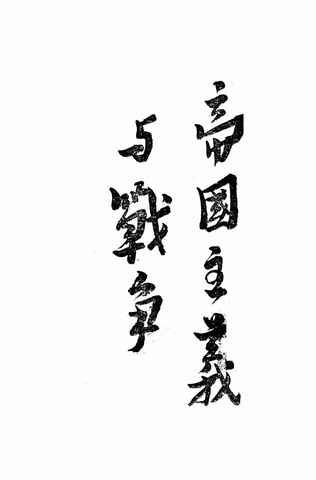 帝國主義
与戰争